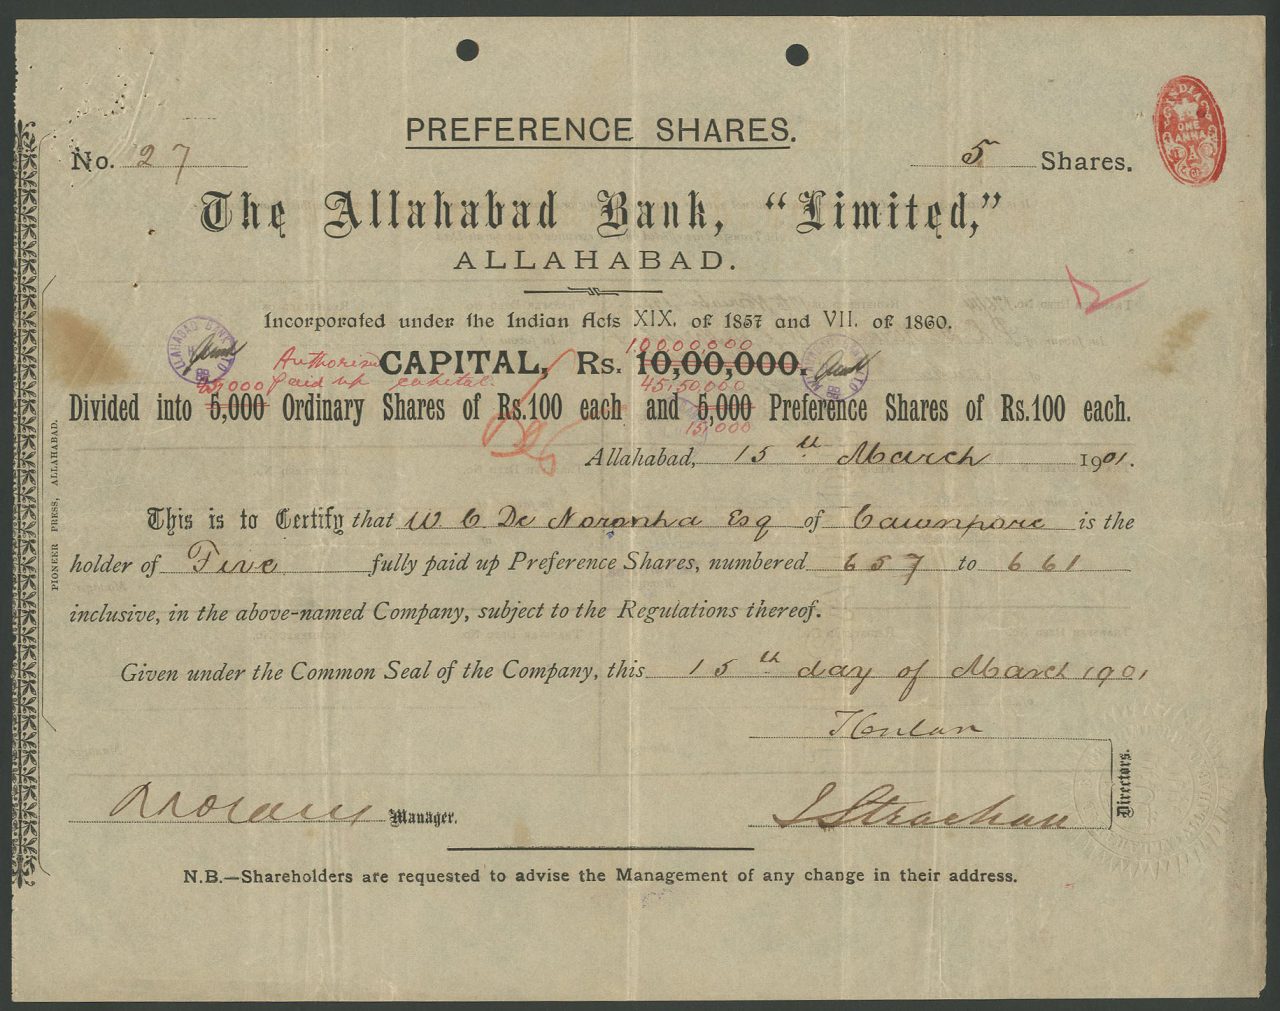 PREFERENCE SHARES.
No. 27
5 Shares.
INDIA
ONE
ANNA
The Allahabad Bank, "Limited,"
ALLAHABAD.
Incorporated under the Indian Acts XIX. of 1857 and VII. of 1860.
10,000,000
Authorised CAPITAL, Rs. 10,00,000.
paid up capital. 45,50,000
Divided into 5,000 Ordinary Shares of Rs.100 each and 5,000 Preference Shares of Rs.100 each.
15,000
Allahabad, 15th March 1901.
This is to Certify that W C De Noronha Esq of Cawnpore is the
holder of Five fully paid up Preference Shares, numbered 657 to 661
inclusive, in the above-named Company, subject to the Regulations thereof.
Given under the Common Seal of the Company, this 15th day of March 1901
Manager.
Strachan
Directors.
N.B.—Shareholders are requested to advise the Management of any change in their address.
PIONEER PRESS, ALLAHABAD.